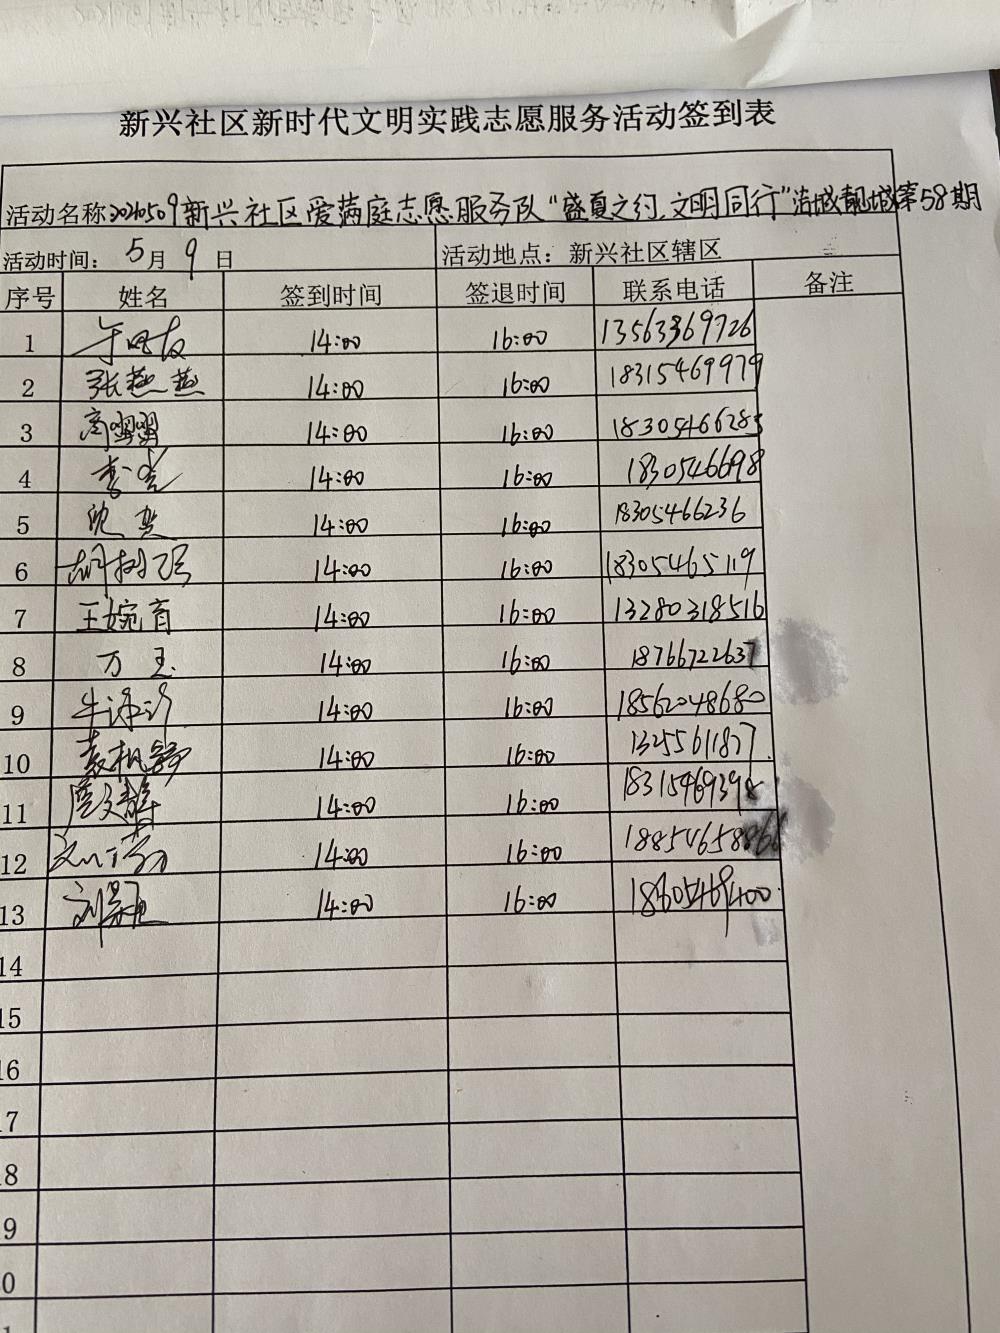 新兴社区新时代文明实践志愿服务活动签到表
活动名称:20260509新兴社区爱满庭志愿服务队“盛夏之约,文明同行”洁城靓城第58期
活动时间: 5月 9 日 活动地点: 新兴社区辖区
序号 姓名 签到时间 签退时间 联系电话 备注
1 14:00 16:00 13563369726
2 张燕燕 14:00 16:00 18315469979
3 高翠翠 14:00 16:00 18305466283
4 14:00 16:00 1830546698
5 14:00 16:00 18305466236
6 胡树强 14:00 16:00 18305465119
7 王婉育 14:00 16:00 13280318516
8 万玉 14:00 16:00 18766722637
9 14:00 16:00 18562048680
10 14:00 16:00 13255611877
11 14:00 16:00
12 14:00 16:00
13 14:00 16:00
14
15
16
17
18
19